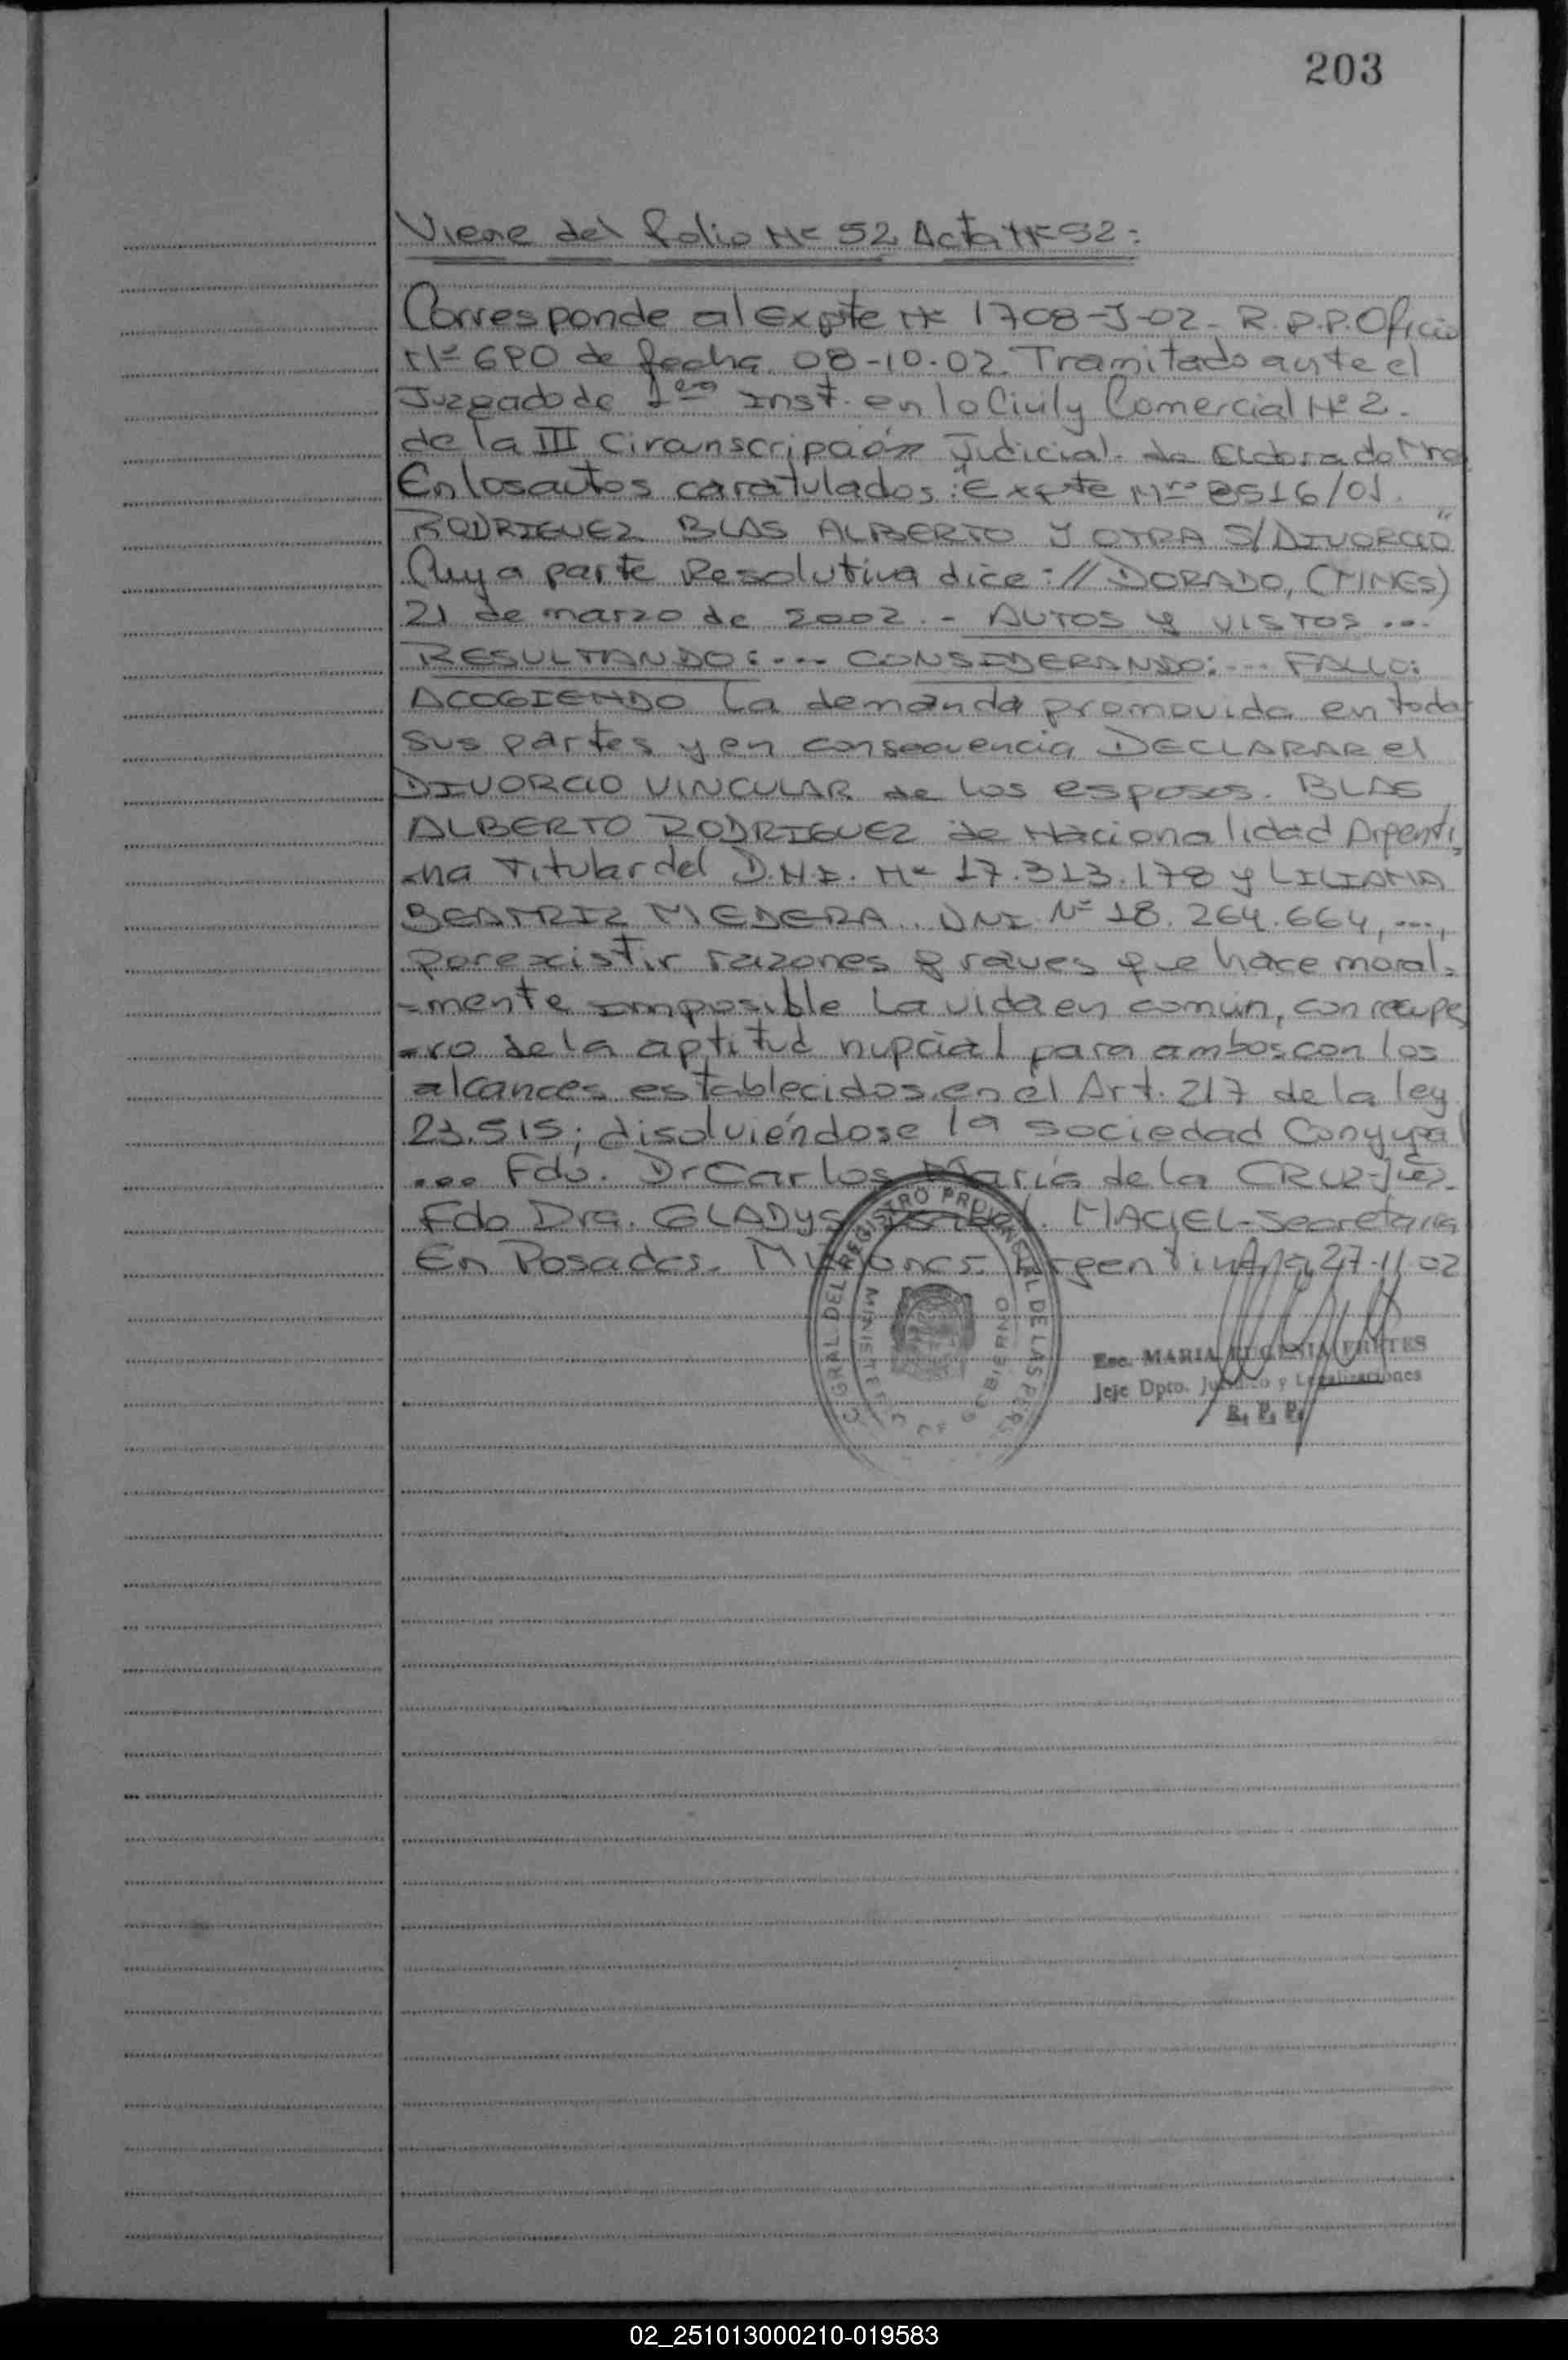 203
Viene del folio Nº 52 Acta Nº 52:
Corresponde al Expte Nº 1708-J-02- R.P.P. Oficio
Nº 690 de fecha 08-10-02. Tramitado ante el
Juzgado de 1era Inst. en lo Civil y Comercial Nº 2.
de la III Circunscripción Judicial de Eldorado Mnes
En los autos caratulados: "Expte Nro 8516/01.
RODRIGUEZ BLAS ALBERTO Y OTRA S/DIVORCIO"
Cuya parte Resolutiva dice: // DORADO, (MNES)
21 de marzo de 2002.- AUTOS Y VISTOS...
RESULTANDO:... CONSIDERANDO:... FALLO:
ACOGIENDO la demanda promovida en todas
sus partes y en consecuencia DECLARAR el
DIVORCIO VINCULAR de los esposos. BLAS
ALBERTO RODRIGUEZ de Nacionalidad Argenti
-na Titular del D.N.I. Nº 17.313.178 y LILIANA
BEATRIZ MEDERA.. DNI Nº 18.264.664, ...,
por existir razones graves que hace moral=
=mente imposible la vida en común, con recupe
-ro de la aptitud nupcial para ambos con los
alcances establecidos en el Art. 217 de la ley
23.515; disolviéndose la sociedad Conyugal
... Fdo. Dr Carlos María de la CRUZ-Juez-
Fdo Dra. GLADYS MACIEL-Secretaria
En Posadas. Misiones. Argentina 27-11-02
GRAL DEL REGISTRO PROVINCIAL DE LAS PERS
MINISTERIO DE GOBIERNO
Esc. MARIA EUGENIA FRETES
Jefe Dpto. Jurídico y Legalizaciones
R. P. P.
02_251013000210-019583